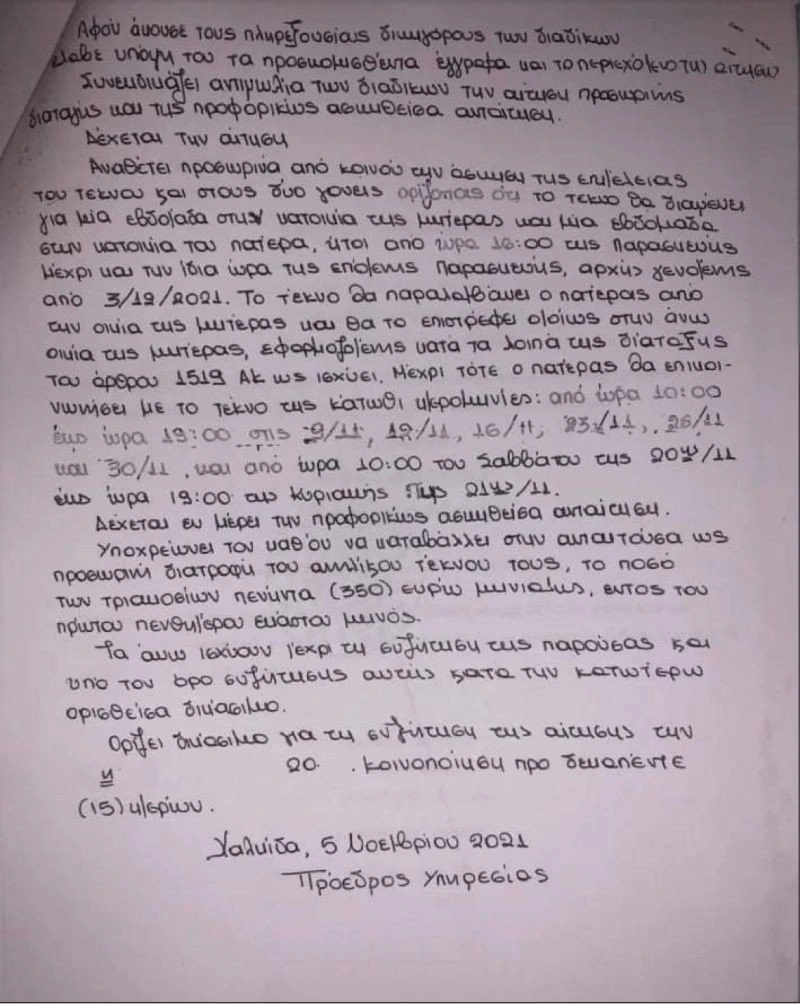 Αφού άκουσε τους πληρεξουσίας δικηγόρους των διαδίκων
έλαβε υπόψη του τα προσκομισθέντα έγγραφα και το περιεχόμενο της αίτησης
Συνεκδικάζει αντιμωλία των διαδίκων την αίτηση προσωρινής
διαταγής και της προφορικώς ασκηθείσα ανταίτηση.
Δέχεται την αίτηση
Αναθέτει προσωρινά από κοινού την άσκηση της επιμέλειας
του τέκνου και στους δύο γονείς ορίζοντας ότι το τέκνο θα διαμένει
για μία εβδομάδα στην κατοικία της μητέρας και μία εβδομάδα
στην κατοικία του πατέρα, ήτοι από ώρα 18:00 της Παρασκευής
μέχρι και την ίδια ώρα της επόμενης Παρασκευής, αρχής γενομένης
από 3/12/2021. Το τέκνο θα παραλαμβάνει ο πατέρας από
την οικία της μητέρας και θα το επιστρέφει ομοίως στην άνω
οικία της μητέρας, εφαρμοζομένης κατά τα λοιπά της διάταξης
του άρθρου 1519 ΑΚ ως ισχύει. Μέχρι τότε ο πατέρας θα επικοι-
νωνήσει με το τέκνο της κάτωθι ημερομηνίες: από ώρα 10:00
έως ώρα 19:00 στις 9/11, 12/11, 16/11, 23/11, 26/11
και 30/11, και από ώρα 10:00 του Σαββάτου της 20ης/11
έως ώρα 19:00 της Κυριακής της 21ης/11.
Δέχεται εν μέρει την προφορικώς ασκηθείσα ανταίτηση.
Υποχρεώνει τον καθ'ου να καταβάλλει στην ανταιτούσα ως
προσωρινή διατροφή του ανηλίκου τέκνου τους, το ποσό
των τριακοσίων πενήντα (350) ευρώ μηνιαίως, εντός του
πρώτου πενθημέρου εκάστου μηνός.
Τα άνω ισχύουν μέχρι τη συζήτηση της παρούσας και
υπό τον όρο συζήτησης αυτής κατά την κατωτέρω
ορισθείσα δικάσιμο.
Ορίζει δικάσιμο για τη συζήτηση της αίτησης την
20 . κοινοποίηση προ δεκαπέντε
(15) ημερών.
Χαλκίδα, 5 Νοεμβρίου 2021
Πρόεδρος Υπηρεσίας